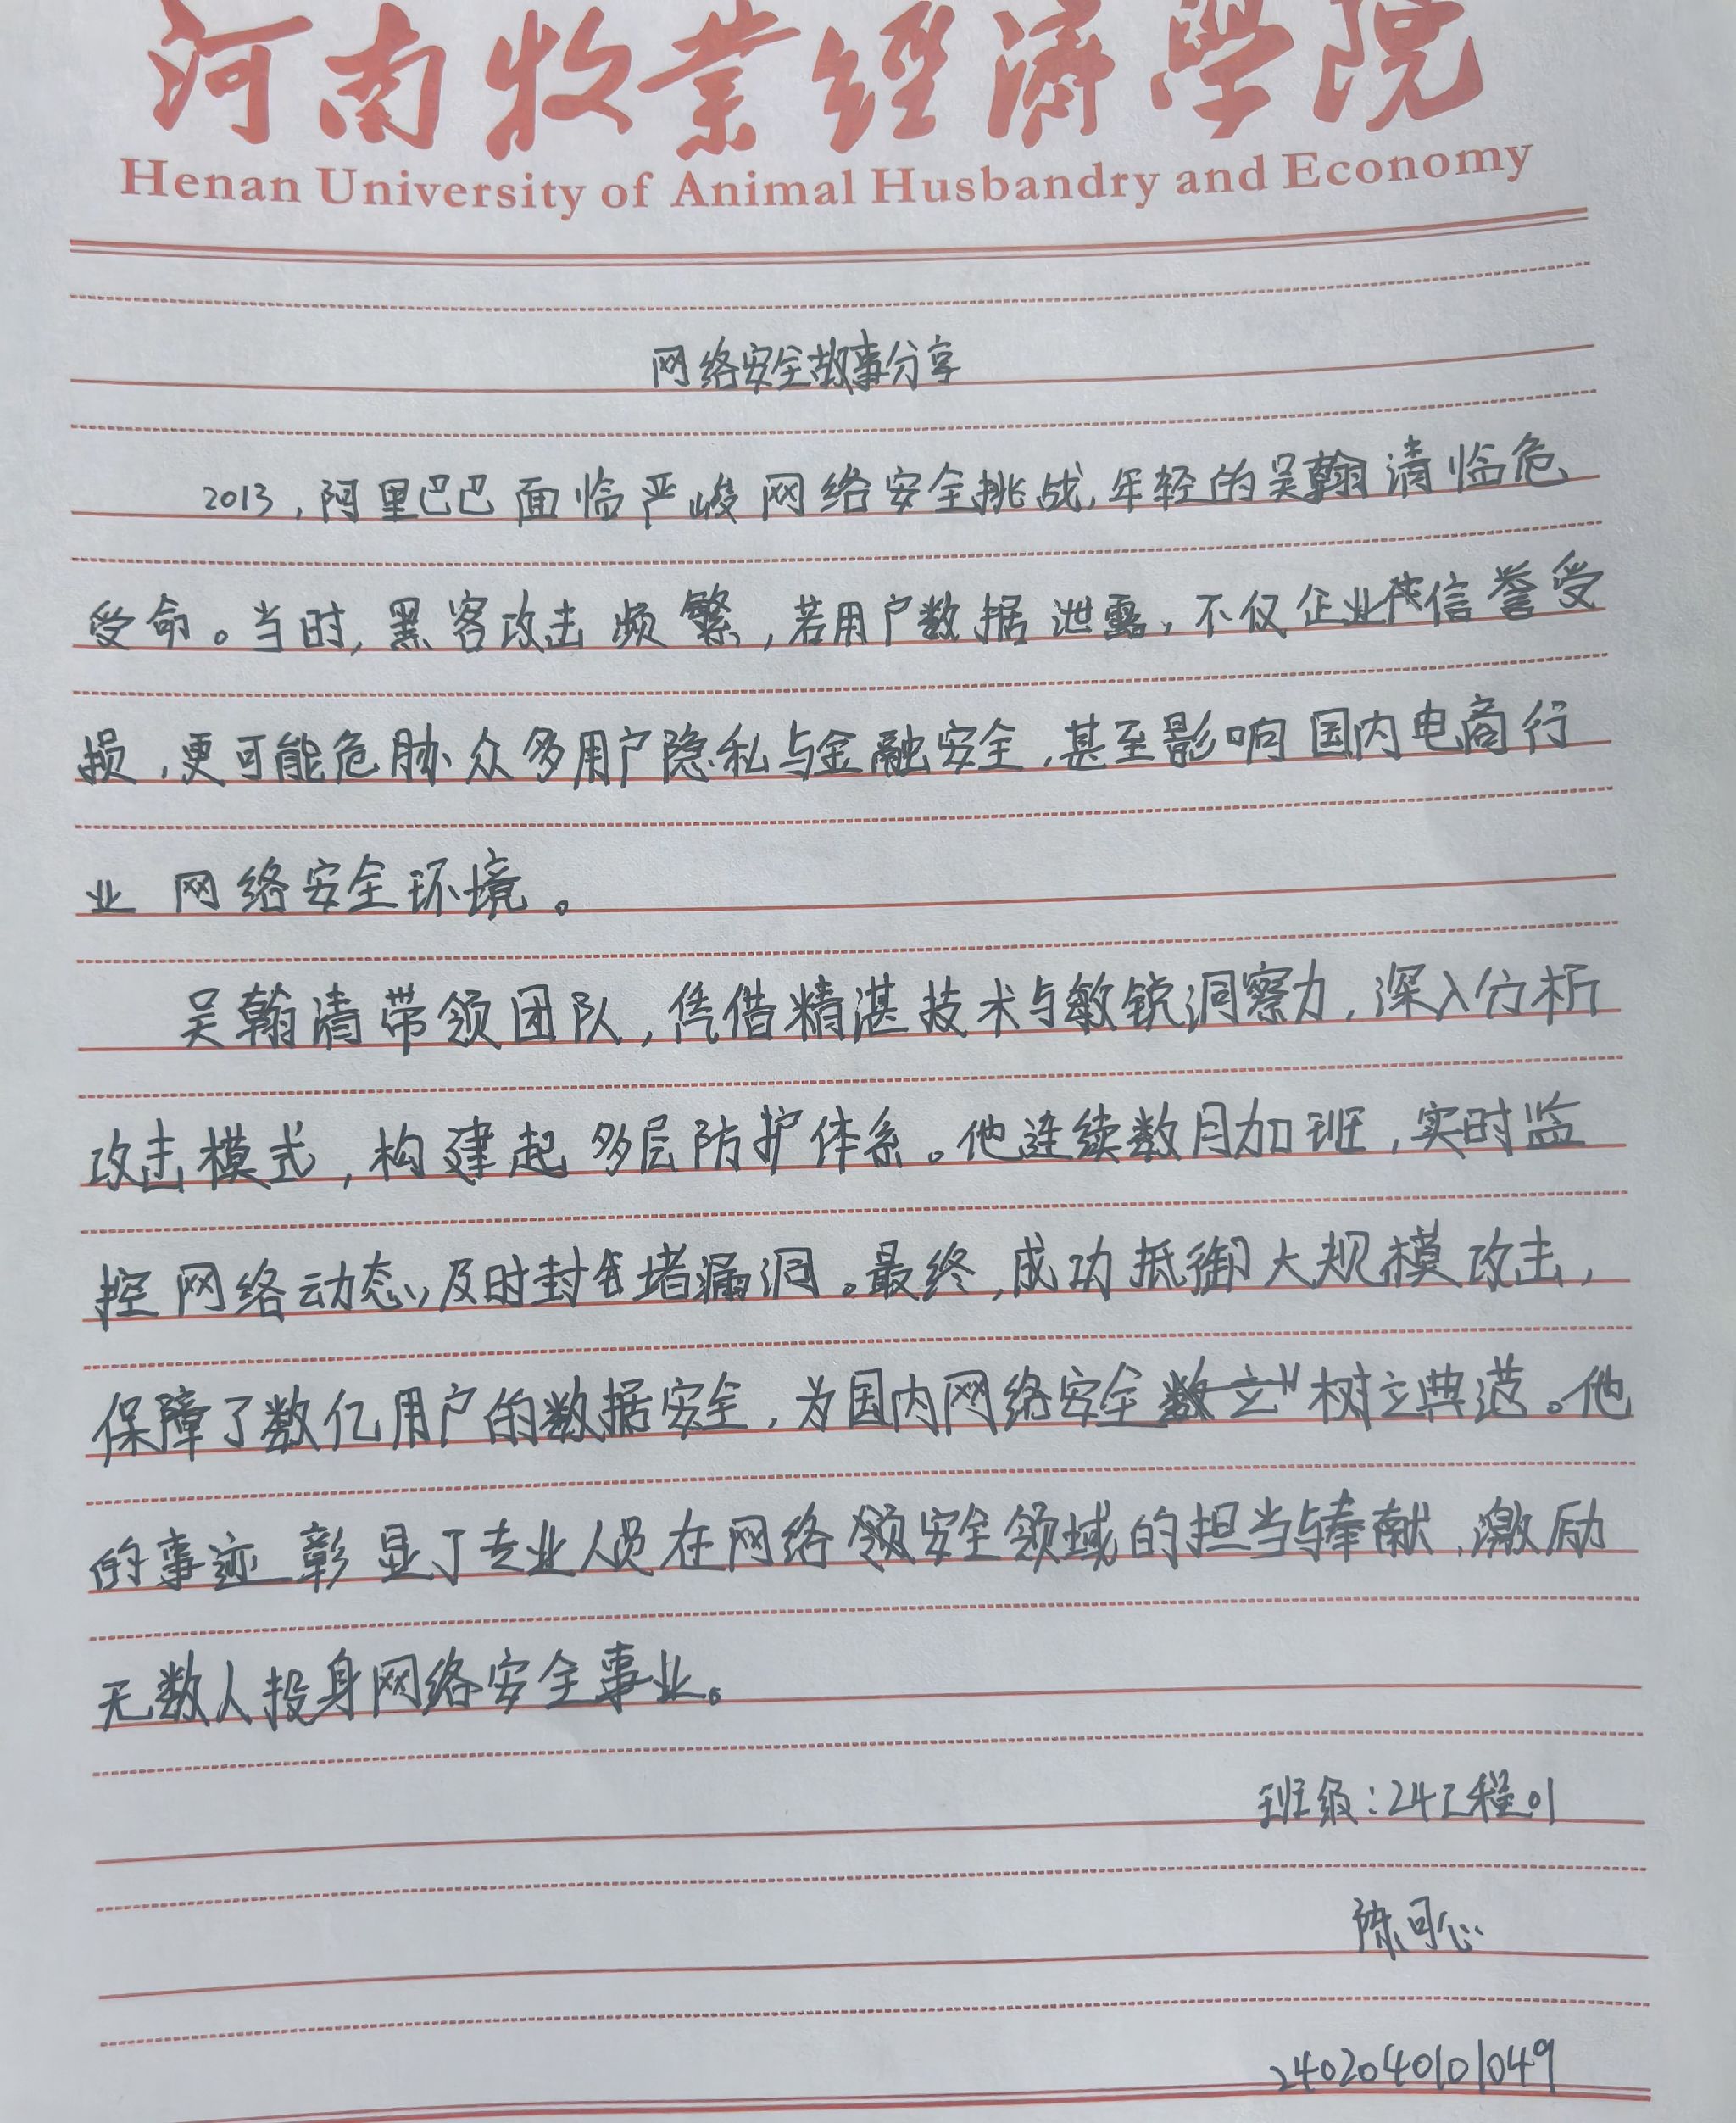 河南牧業經濟學院
Henan University of Animal Husbandry and Economy
网络安全故事分享
2013，阿里巴巴面临严峻网络安全挑战，年轻的吴翰清临危
受命。当时，黑客攻击频繁，若用户数据泄露，不仅企业信誉受
损，更可能危胁众多用户隐私与金融安全，甚至影响国内电商行
业网络安全环境。
吴翰清带领团队，凭借精湛技术与敏锐洞察力，深入分析
攻击模式，构建起多层防护体系。他连续数月加班，实时监
控网络动态，及时封堵漏洞。最终，成功抵御大规模攻击，
保障了数亿用户的数据安全，为国内网络安全树立典范。他
的事迹彰显了专业人员在网络安全领域的担当与奉献，激励
无数人投身网络安全事业。
班级：24工程01
陈可心
2402040101049